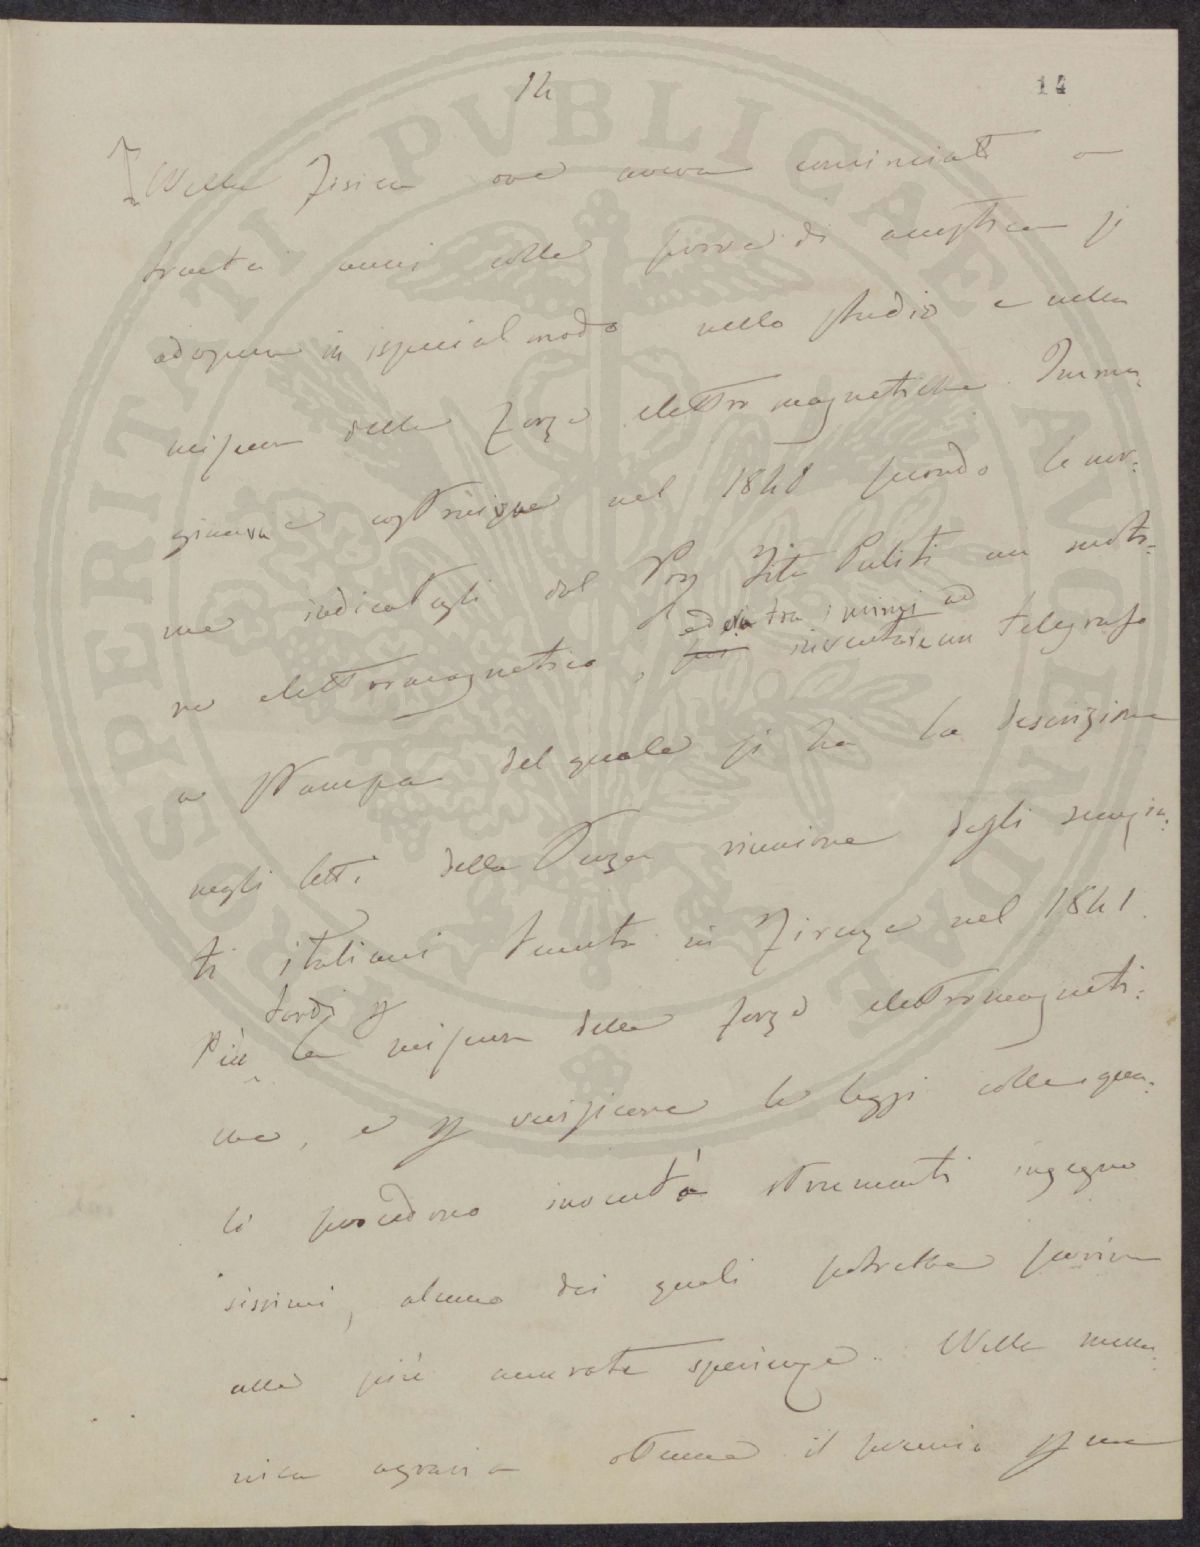 14
14
Nella fisica ove aveva cominciato a
trenta anni colle prove di acustica si
adoperò in ispecial modo nello studio e nella
misura delle forze elettro magnetiche. Imma=
ginava e costruiva nel 1840 secondo le nor=
me indicategli dal Prof Tito Puliti un moto=
re elettromagnetico, ed era tra i primi ad
fra inventare un telegrafo
a stampa del quale si ha la descrizione
negli Atti della Terza riunione degli scienzia=
ti italiani tenuta in Firenze nel 1841.
Più tardi per
la misura delle forze elettromagneti=
che, e per verificare le leggi colle qua=
li procedono inventò strumenti ingegno
sissimi, alcuno dei quali potrebbe servire
alle più accurate sperienze. Nella mecca=
nica agraria ottenne il premio per una
PROSPERITATI PVBLICAE AVGENDAE